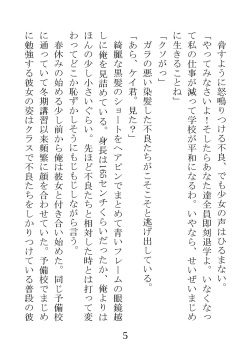 脅すように怒鳴りつける不良、でも少女の声はひるまない。
「やってみなさいよ！そしたらあなた達全員即刻退学よ。いなくなっ
て私の仕事が減って学校が平和になるわ。いやなら、せいぜいまじめ
に生きることね」
「クソがっ」
ガラの悪い染髪した不良たちがこそこそと逃げ出している。
「あら、ケイ君、見た？」
綺麗な黒髪のショートをヘアピンでまとめて青いフレームの眼鏡越
しに俺を見詰めている。身長は165センチくらいだったか、俺よりは
ほんの少し小さいぐらい。先ほど不良たちと相対した時とは打って変
わってどこか恥ずかしそうにもじもじしながら言う。
春休みの始める少し前から俺は彼女と付き合い始めた。同じ予備校
に通っていて冬期講習以来頻繁に顔を合わせていた。予備校でまじめ
に勉強する彼女の姿はクラスで不良たちをしかりつけている普段の彼
5